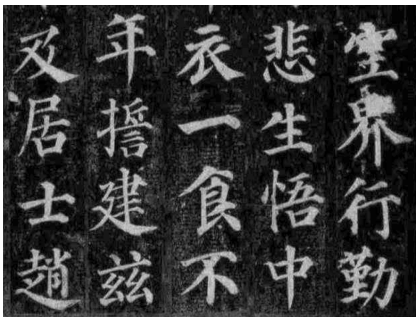 空界行勤
悲生悟中
衣一食不
年誓建茲
及居士趙